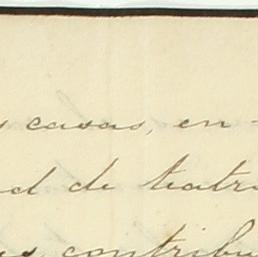 s casas, en-
d de teatr
s contribu